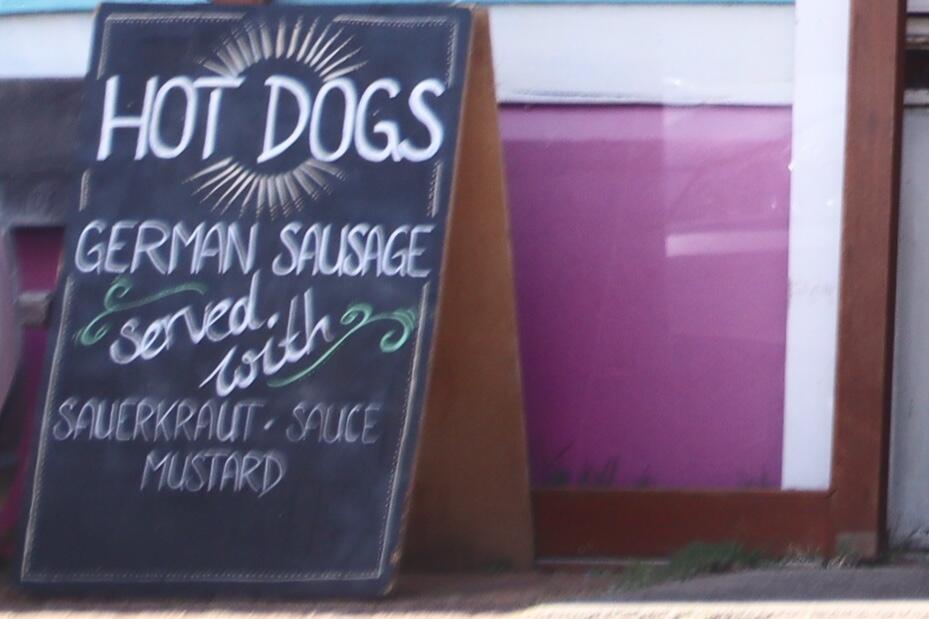 HOT DOGS
GERMAN SAUSAGE
served.
with
SAUERKRAUT · SAUCE
MUSTARD